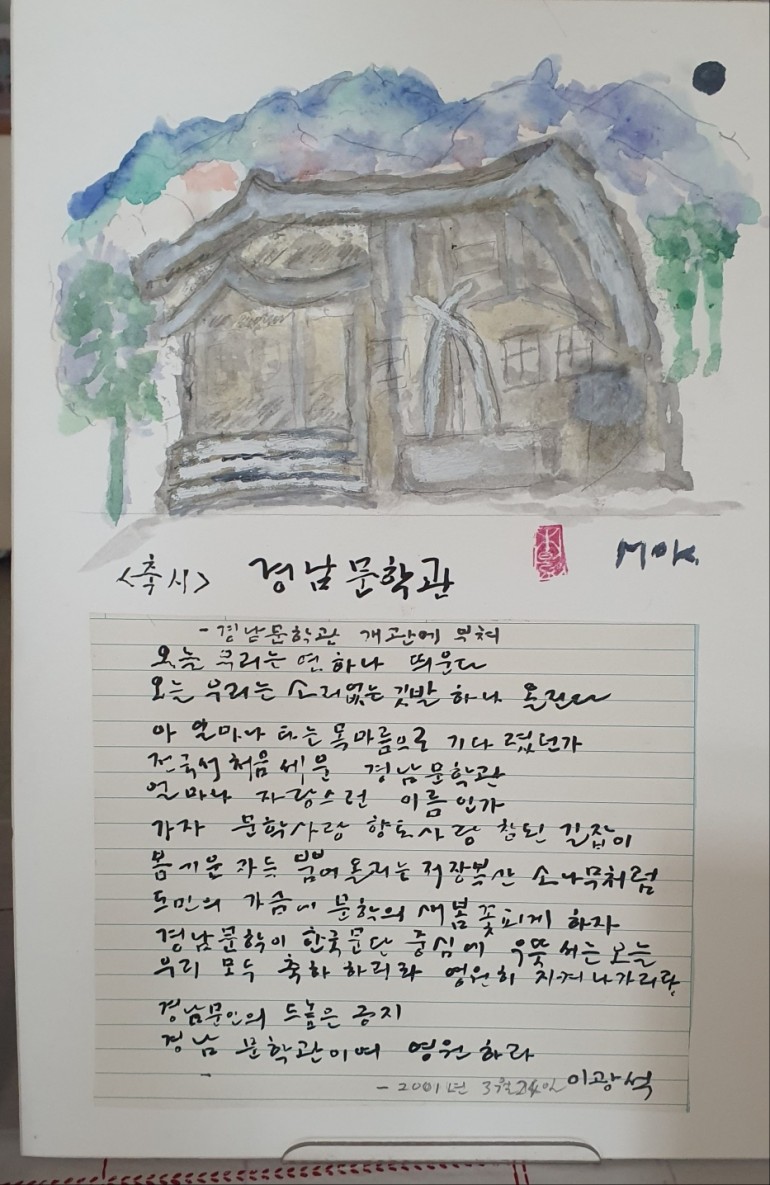 MOK.
<축시> 경남문학관
- 경남문학관 개관에 부쳐
오늘 우리는 연 하나 띄운다
오늘 우리는 소리없는 깃발 하나 올린다
아 얼마나 타는 목마름으로 기다렸던가
전국서 처음 세운 경남문학관
얼마나 자랑스런 이름인가
가자 문학사랑 향토사랑 참된 길잡이
봄기운 가득 뿜어올리는 저 장복산 소나무처럼
도민의 가슴에 문학의 새봄 꽃피게 하자
경남문학이 한국문단 중심에 우뚝 서는 오늘
우리 모두 축하하리라 영원히 지켜나가리라
경남문인의 드높은 긍지
경남문학관이여 영원하라
- 2001년 3월 24일 이광석